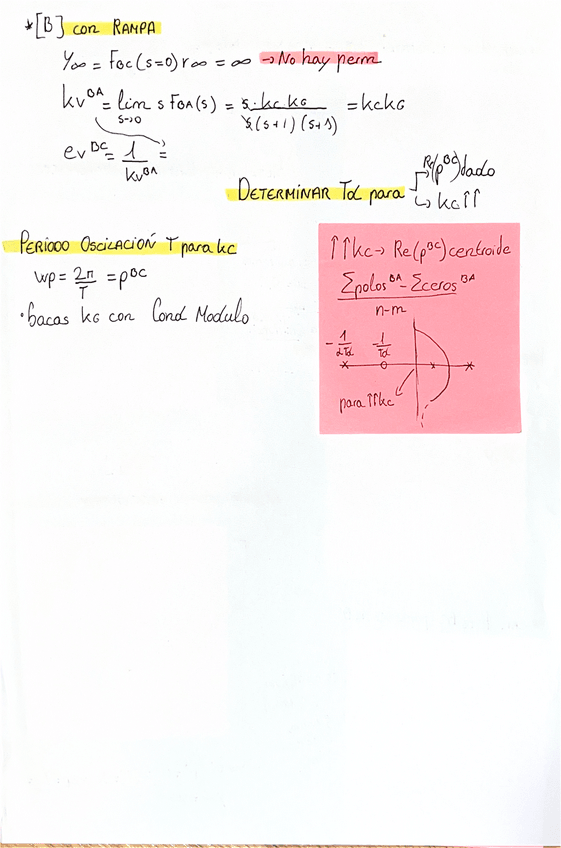 *[B] con RAMPA
Y∞ = FBC(s=0) r∞ = ∞ → No hay perm
kv^BA = lim s→0 s FBA(s) = s·kc kG / s(s+1)(s+1) = kckG
ev^BC = 1/kv^BA =
DETERMINAR Td para → Re(p^BC) dado
↳ kc↑↑
PERIODO OSCILACIÓN T para kc
wp = 2π/T = p^BC
·Sacas kG con Cond Modulo
↑↑kc → Re(p^BC) centroide
Σpolos^BA - Σceros^BA / n-m
-1/αTd -1/Td
para ↑↑kc